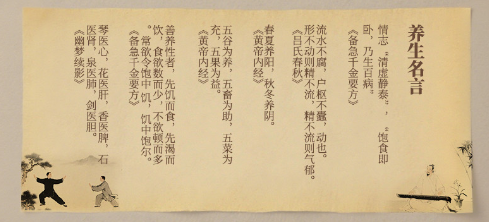 养生名言
情志“清虚静泰”，“饱食即
卧，乃生百病”
《备急千金要方》
流水不腐，户枢不蠹，动也。
形不动则精不流，精不流则气郁。
《吕氏春秋》
春夏养阳，秋冬养阴。
《黄帝内经》
五谷为养，五畜为助，五菜为
充，五果为益。
《黄帝内经》
善养性者，先饥而食，先渴而
饮，食欲数而少，不欲顿而多
。常欲令饱中饥，饥中饱尔。
《备急千金要方》
琴医心，花医肝，香医脾，石
医肾，泉医肺，剑医胆。
《幽梦续影》